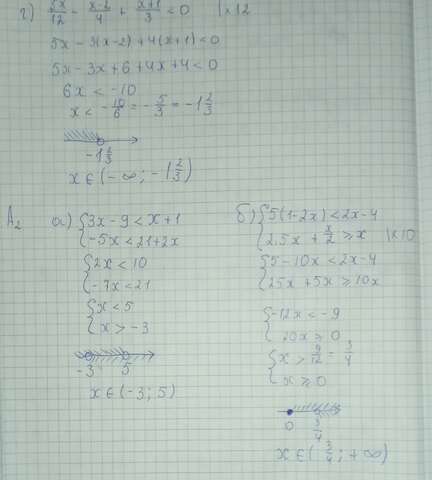 г) 5x/12 - (x-2)/4 + (x+1)/3 < 0 | x 12
5x - 3(x-2) + 4(x+1) < 0
5x - 3x + 6 + 4x + 4 < 0
6x < -10
x < -10/6 = -5/3 = -1 2/3
-1 2/3
x ∈ (-∞; -1 2/3)
A₂ а) { 3x - 9 < x + 1
-5x < 21 + 2x
{ 2x < 10
-7x < 21
{ x < 5
x > -3
-3 5
x ∈ (-3; 5)
б) { 5(1-2x) < 2x - 4
2,5x + x/2 ≥ x | x 10
{ 5 - 10x < 2x - 4
25x + 5x ≥ 10x
{ -12x < -9
20x ≥ 0
{ x > 9/12 = 3/4
x ≥ 0
0 3/4
x ∈ (3/4; +∞)